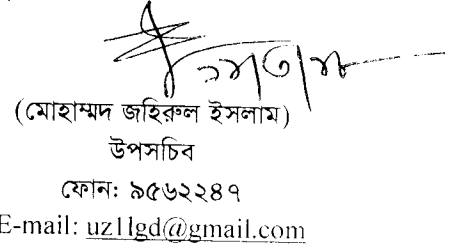 (মোহাম্মদ জহিরুল ইসলাম)
উপসচিব
ফোন: ৯৫৬২২৪৭
E-mail: uz1lgd@gmail.com